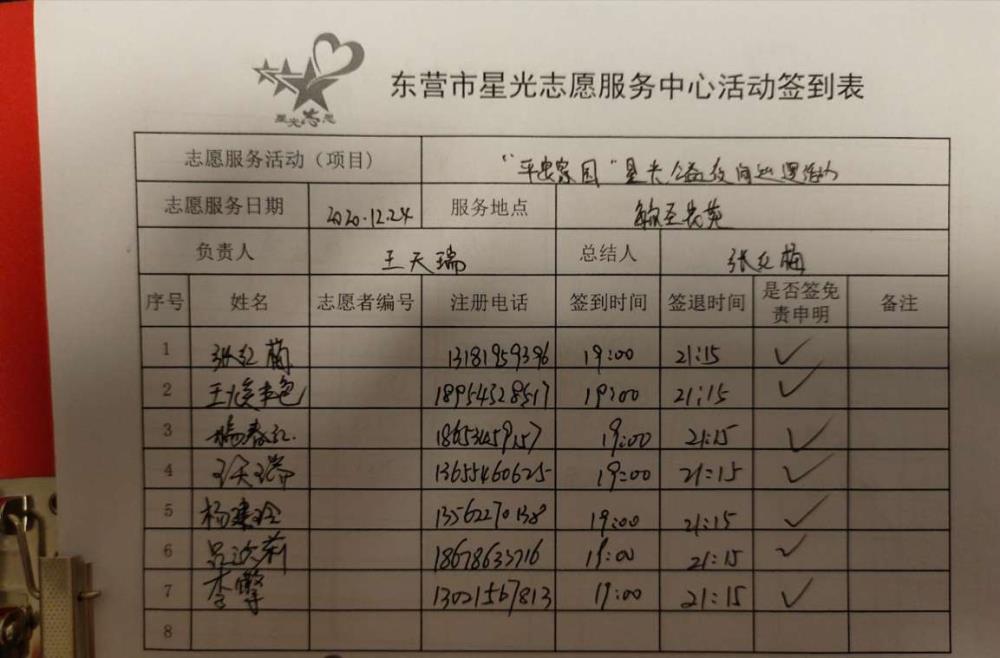 星光志愿
东营市星光志愿服务中心活动签到表
志愿服务活动（项目） "平安家园"星光公益夜间巡逻活动
志愿服务日期 2020.12.24 服务地点
负责人 王天瑞 总结人 张红梅
序号 姓名 志愿者编号 注册电话 签到时间 签退时间 是否签免责申明 备注
1 张红梅 13181959396 19:00 21:15 ✓
2 18954328517 19:00 21:15 ✓
3 杨春红 18653459157 19:00 21:15 ✓
4 王天瑞 13655460625 19:00 21:15 ✓
5 杨建玲 13562270138 19:00 21:15 ✓
6 18678633716 19:00 21:15 ✓
7 李擎 13021567813 19:00 21:15 ✓
8